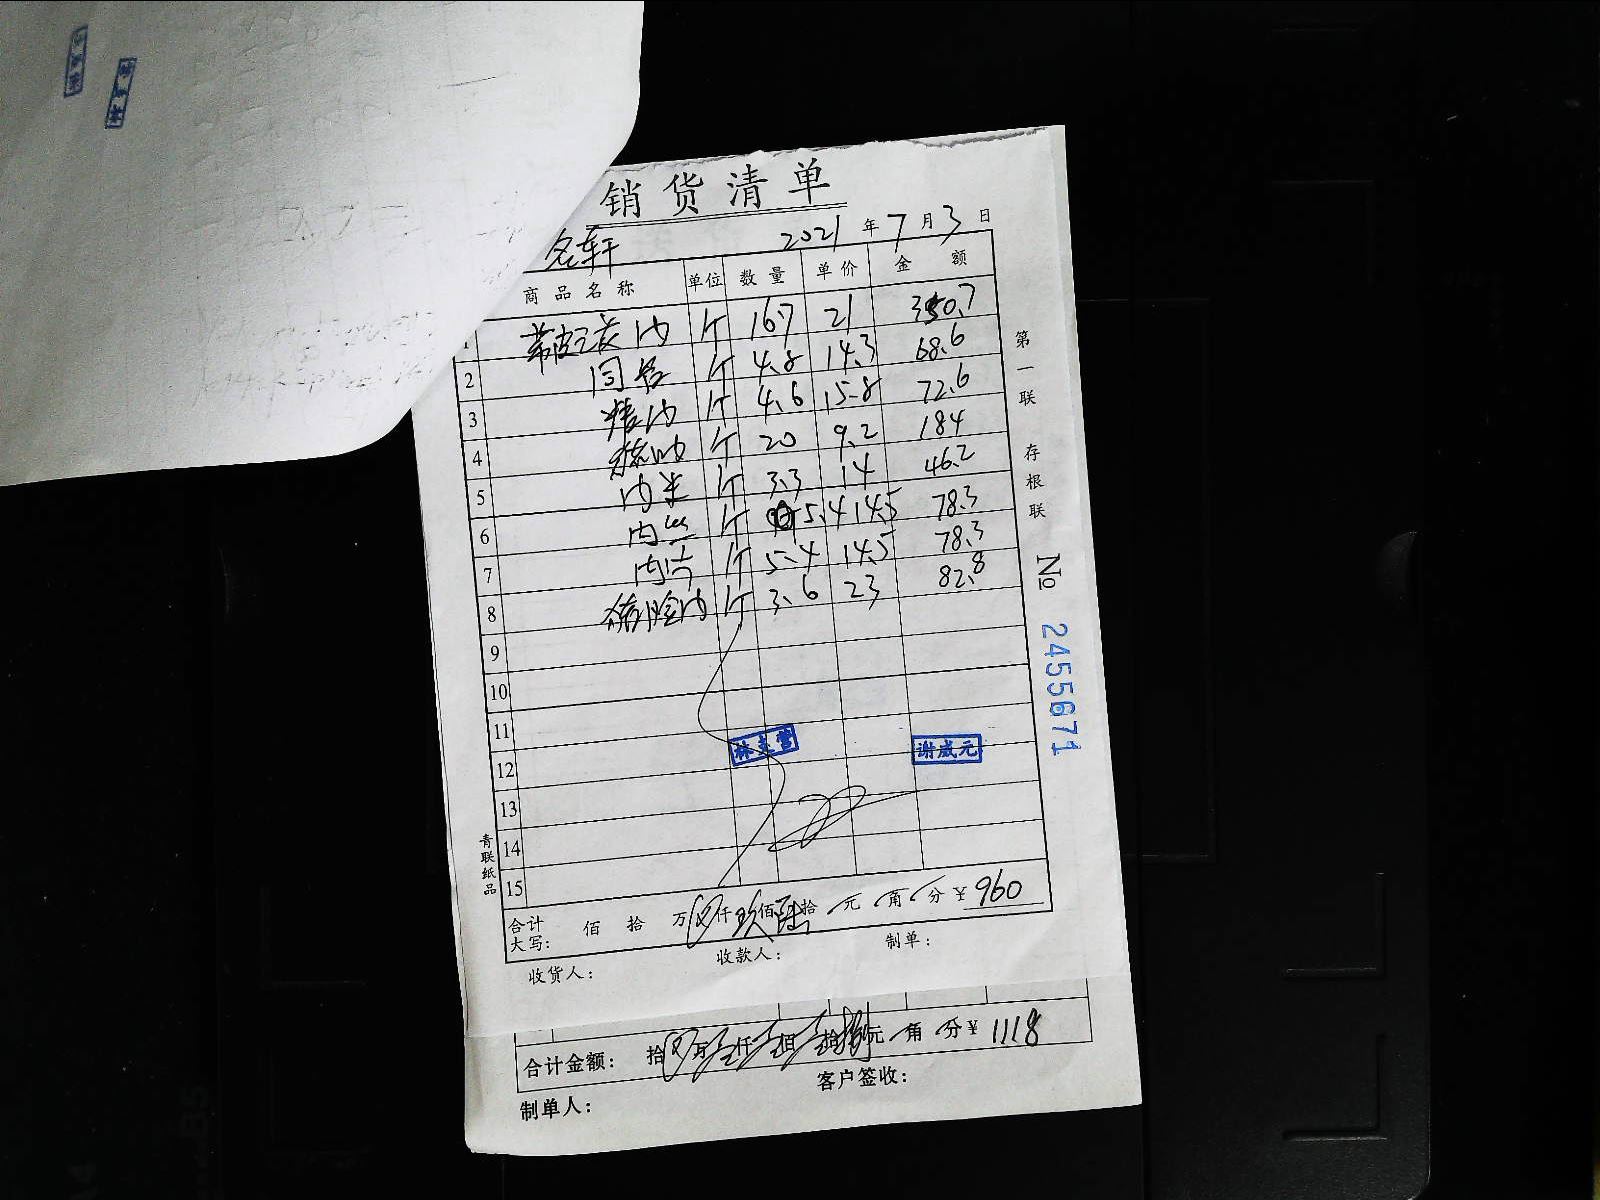 销货清单
名轩 2021年7月3日
商品名称 单位 数量 单价 金额
1 带皮三衣肉 斤 16.7 21 350.7
2 斤 4.8 14.3 68.6
3 精肉 斤 4.6 15.8 72.6
4 斤 20 9.2 184
5 肉米 斤 3.3 14 46.2
6 肉丝 斤 5.4 14.5 78.3
7 肉片 斤 5.4 14.5 78.3
8 猪脸肉 斤 3.6 23 82.8
9
10
11
林立营 谢成元
12
13
14
15
合计大写: 佰 拾 万 仟 玖 佰 陆 拾 元 角 分 ¥ 960
收货人: 收款人: 制单:
第一联 存根联
No 2455671
青联纸品
合计金额: 拾 万 壹 仟 壹 佰 壹 拾 捌 元 角 分 ¥ 1118
客户签收:
制单人: